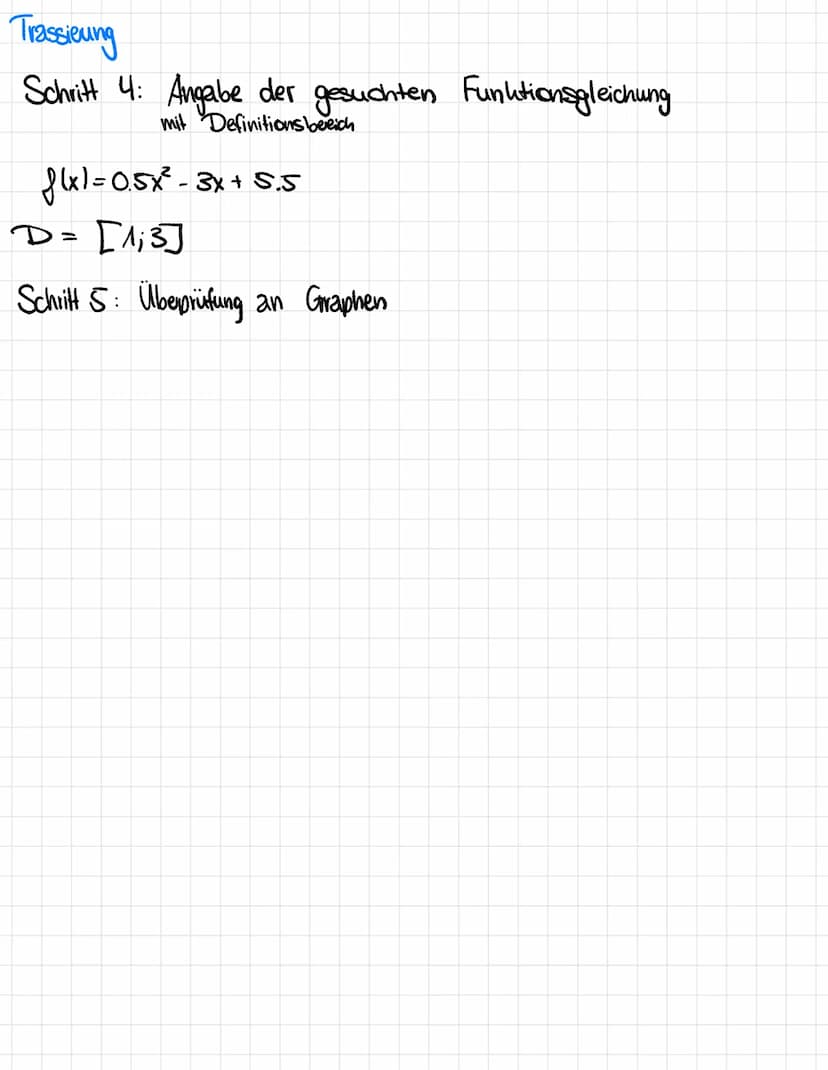 Trassierung
Schritt 4: Angabe der gesuchten Funktionsgleichung
mit Definitionsbereich
f(x) = 0.5x² - 3x + 5.5
D = [1; 3]
Schritt 5: Überprüfung an Graphen